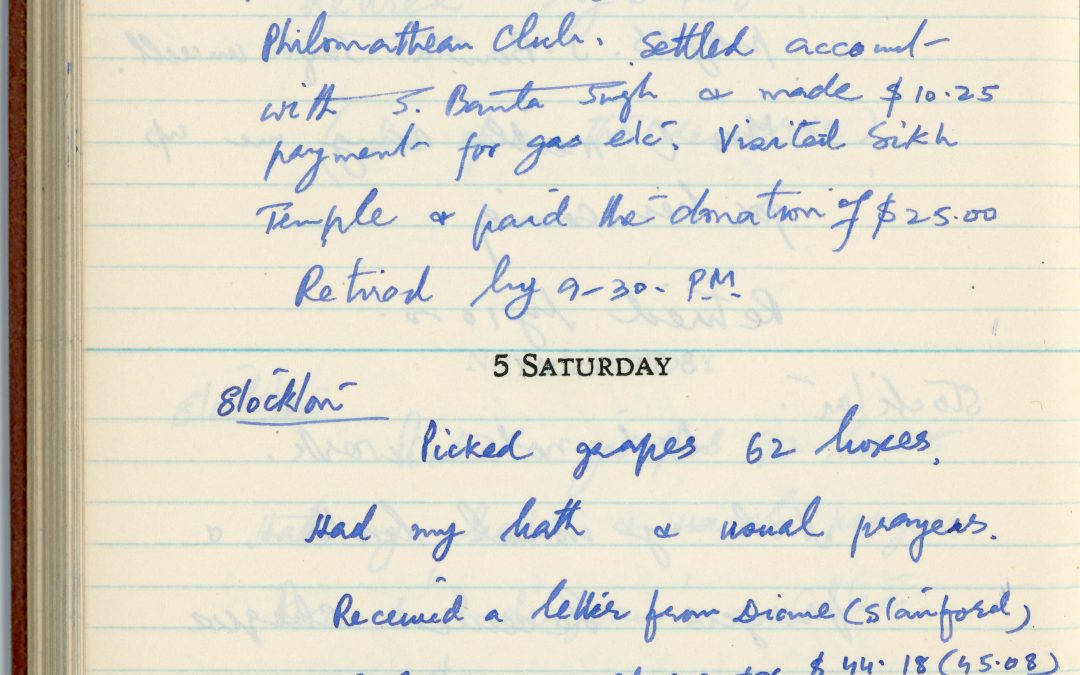 Philomathean Club. Settled account
with S. Banta Singh & made $10.25
payment for gas etc. Visited Sikh
Temple & paid the donation of $25.00
Retired by 9-30. P.M.
5 SATURDAY
Stockton
Picked grapes 62 boxes.
Had my bath & usual prayers.
Received a letter from Diane (Stanford)
$44.18 (45.08)